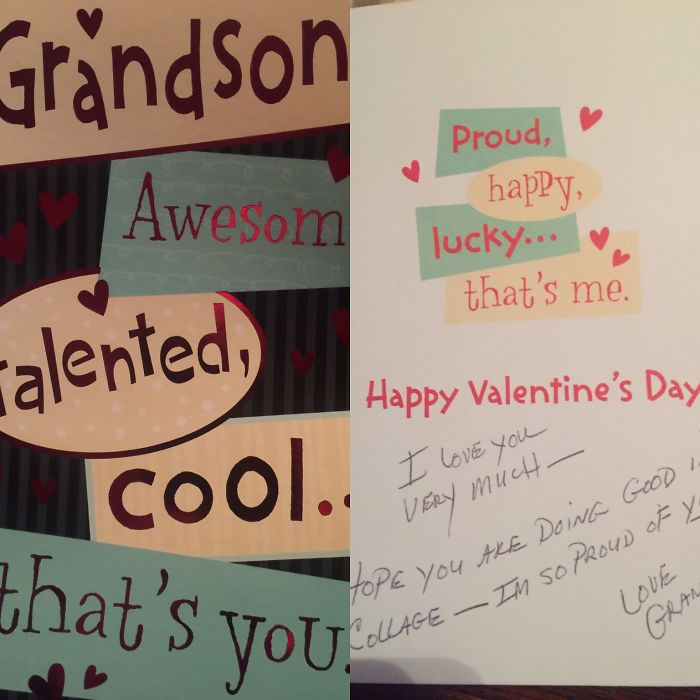 Grandson
Awesom
Talented,
cool..
that's you.
Proud,
happy,
lucky...
that's me.
Happy Valentine's Day
I LOVE YOU
VERY MUCH—
HOPE YOU ARE DOING GOOD I
COLLAGE — IM SO PROUD OF Y
LOVE
GRAN